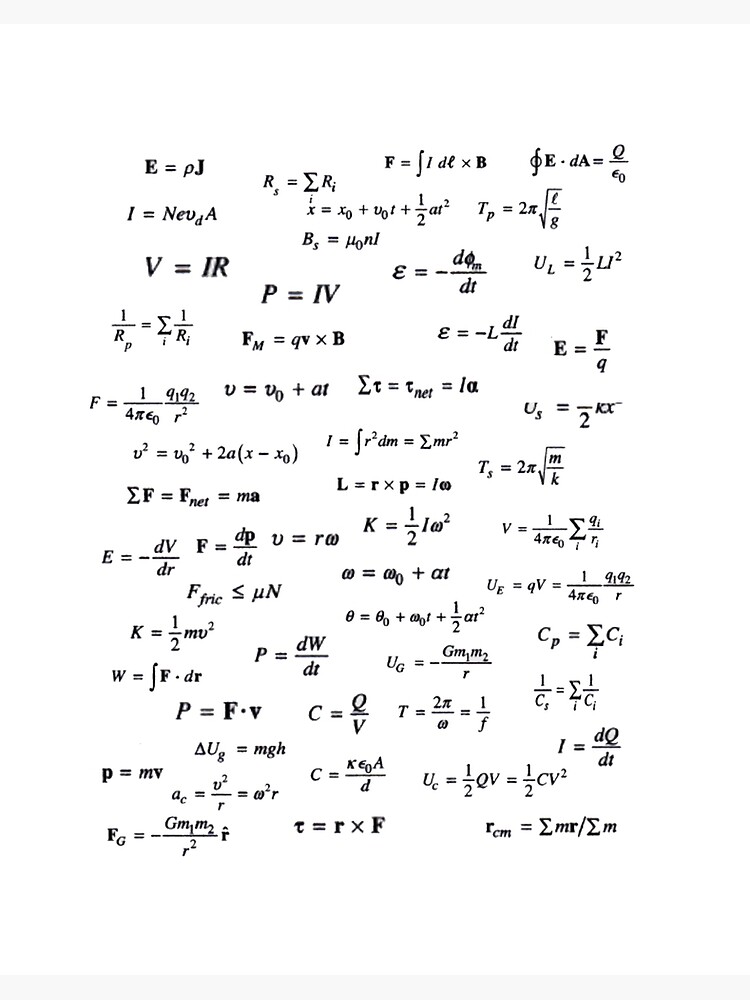 E = ρJ
F = ∫I dℓ × B
∮E · dA = Q/ϵ₀
R_s = ∑_i R_i
I = Nev_dA
x = x₀ + υ₀t + 1/2 at²
T_p = 2π√(ℓ/g)
B_s = μ₀nI
V = IR
ε = −dϕ_m/dt
U_L = 1/2 LI²
P = IV
1/R_p = ∑_i 1/R_i
F_M = qv × B
ε = −L dI/dt
E = F/q
F = 1/4πϵ₀ q₁q₂/r²
υ = υ₀ + at
∑τ = τ_net = Iα
U_s = /2 κx
υ² = υ₀² + 2a(x − x₀)
I = ∫r²dm = ∑mr²
T_s = 2π√(m/k)
∑F = F_net = ma
L = r × p = Iω
K = 1/2 Iω²
V = 1/4πϵ₀ ∑_i q_i/r_i
E = −dV/dr
F = dp/dt
υ = rω
ω = ω₀ + αt
F_fric ≤ μN
U_E = qV = 1/4πϵ₀ q₁q₂/r
θ = θ₀ + ω₀t + 1/2 αt²
K = 1/2 mυ²
P = dW/dt
C_p = ∑_i C_i
W = ∫F · dr
U_G = −Gm₁m₂/r
1/C_s = ∑_i 1/C_i
P = F·v
C = Q/V
T = 2π/ω = 1/f
ΔU_g = mgh
I = dQ/dt
p = mv
a_c = υ²/r = ω²r
C = κϵ₀A/d
U_c = 1/2 QV = 1/2 CV²
F_G = −Gm₁m₂/r² r̂
τ = r × F
r_cm = ∑mr/∑m